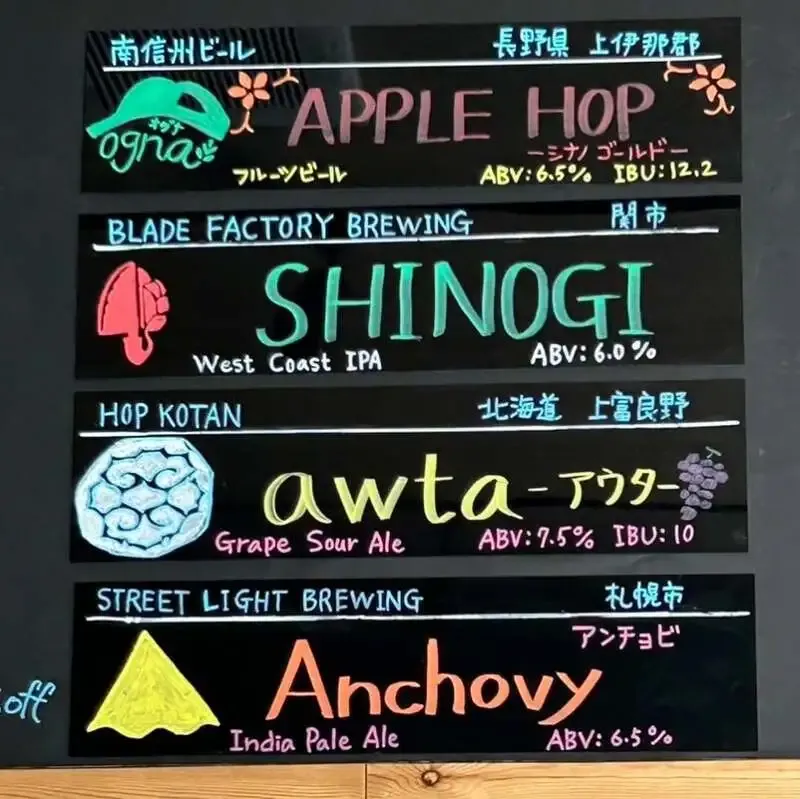 南信州ビール 長野県 上伊那郡
オグナ
ogna
APPLE HOP
ーシナノゴールドー
フルーツビール ABV:6.5% IBU:12.2
BLADE FACTORY BREWING 関市
SHINOGI
West Coast IPA ABV:6.0%
HOP KOTAN 北海道 上富良野
awta-アウター
Grape Sour Ale ABV:7.5% IBU:10
STREET LIGHT BREWING 札幌市
アンチョビ
Anchovy
off
India Pale Ale ABV:6.5%